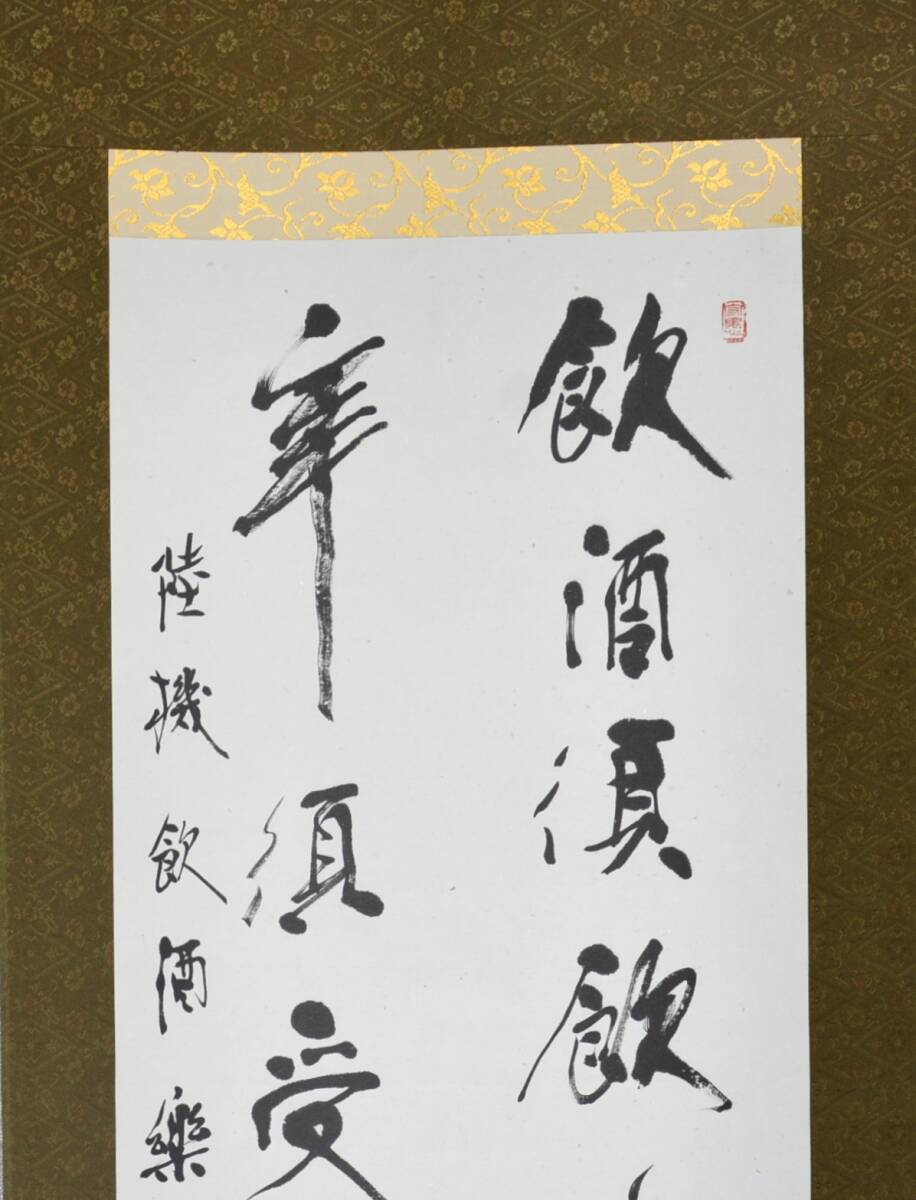 飲酒須飲
辛須受
陸機飲酒樂